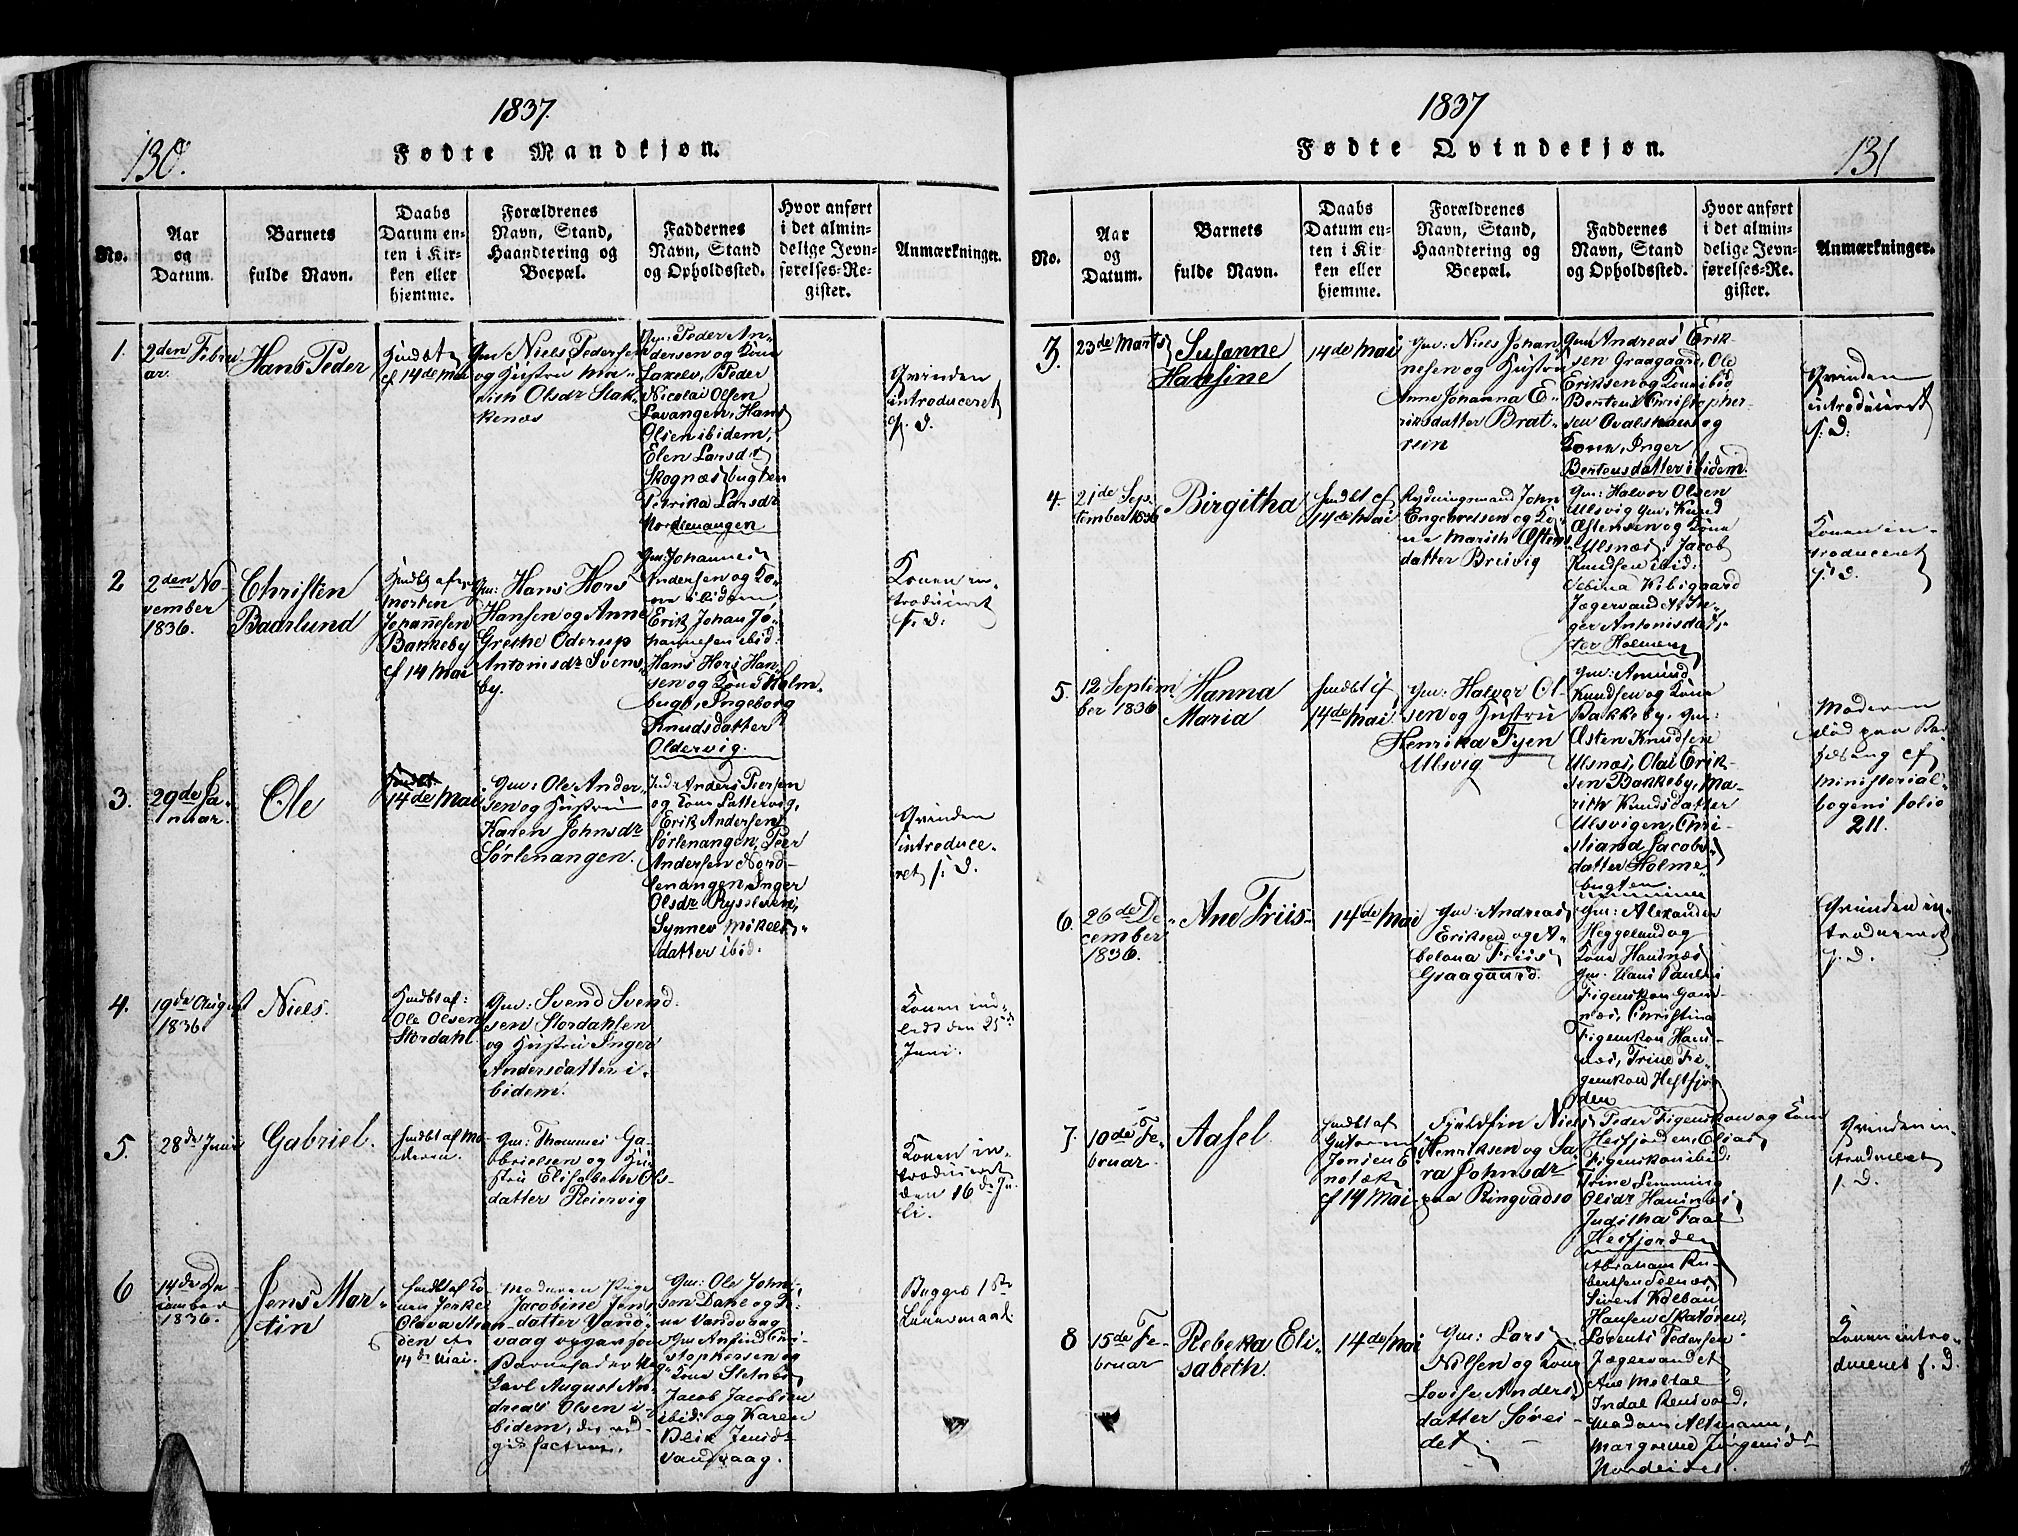 1837.
130.
Fødte Mandkjøn.
No.
Aar
og
Datum.
Barnets
fulde Navn.
Daabs
Datum en-
ten i Kir-
ken eller
hjemme.
Forældrenes
Navn, Stand,
Haandtering og
Boepæl.
Faddernes
Navn, Stand
og Opholdssted.
Hvor anført
i det almin-
delige Jevn-
førelses-Re-
gister.
Anmærkninger.
1.
2den Febru
ar.
Hans Peder
Hmdbt
cf 14de Mai
Gm Niels Pedersen
og Hustru Ma-
rith Olsdr Stak-
kenæs
Gm: Peder An-
dersen og Kone
Laxelv, Peder
Nicolai Olsen
Lavangen, Hans
Olsen ibidem,
Elen Larsdr
Skognæsbugten
Petrika Larsdr
Nordlenangen
Qvinden
introduceret
s. D.
2
2den No
vember
1836.
Christen
Baarlund
Hmdbt af
Morten
Johannesen
Bankeby
cf 14 Mai
Gm: Hans Hors
Hansen og Anne
Grethe Oderup
Antonisdr Svens-
by.
Gm: Johannes
Andersen og Ko-
ne ibidem
Erik Johan Jo-
hannesen ibid:
Hans Hors Han-
sen og Kone Holm-
bugt, Ingeborg
Knudsdatter
Oldervig.
Konen in-
troduceret
s. D.
3.
29de Ja-
nuar.
Ole
14de Mai
Gm: Ole Ander-
sen og Hustru
Karen Johnsdr
Sørlenangen.
Indr Anders Peersen
og Kone Lattervig,
Erik Andersen
Sørlenangen, Peer
Andersen Nord-
lenangen, Inger
Olsdr Rysstreen,
Synnev Mikels-
datter ibid.
Qvinden
introduce-
ret s. D.
4.
19de August
1836.
Niels.
Hmdbt af:
Ole Olsen
Stordahl
Gm: Svend Svend-
sen Stordahlen
og Hustru Inger
Andersdatter i-
bidem.
Konen ind-
ledt den 25de
Juni.
5.
28de Juni
Gabriel.
Hmdbt af Mo-
deren.
Gm: Thommes Ga-
brielsen og Hu-
stru Elisabeth Ols-
datter Reiervig
Konen in-
troduceret
den 16de Ju-
li.
6
14de De-
cember
1836.
Jens Mar-
tin
Hmdbt af Ko-
nen
Olava
den cf
14de Mai.
Moderen Pige
Jacobine Jens
datter Vand-
vaag opgav for
Barnefader
Carl August An-
dreas Olsen i-
bidem,
Gm: Ole Johni-
sen Dahl og Ko-
ne Vandvaag
Gm Amund Chri-
stophersen og
Kone Stetnæs
Jacob Jacobsen
ibid: og Karen
Blix Jensdr
Vandvaag.
Bygges 1ste
Leiermaal.
1837
131
Fødte Qvindekjøn.
No.
Aar
og
Datum.
Barnets
fulde Navn.
Daabs
Datum en-
ten i Kir-
ken eller
hjemme.
Forældrenes
Navn, Stand,
Haandtering og
Boepæl.
Faddernes
Navn, Stand
og Opholdssted.
Hvor anført
i det almin-
delige Jevn-
førelses-Re-
gister.
Anmærkninger.
3.
23de Marts
Susanne
Hansine
14de Mai
Gm: Niels Johan-
nesen og Hustru
Anne Johanna E-
riksdatter Brat-
rein
Gm Andreas Erik-
sen Graagaard, Ole
Eriksen og Kone ibid
Bertens Christopher-
sen Ovalshaus og
Kone, Inger
Bertensdatter ibidem.
Qvinden
introduceret
s. D.
4.
21de Sep-
tember 1836
Birgitha
Hmdbt cf
14de Mai
Rydningsmand John
Engebretsen og Ko-
ne Marith Østens
datter Breivig
Gm: Halvor Olsen
Ulsvig Gm: Knud
Østensen og Kone
Ulsnæs, Jacob
Knudsen ibid:
Sebina Kibigaard
Jægervandet, In-
ger Antonisdat-
ter Holmen
Konen in-
troduceret
s. D.
5.
12 Septem
ber 1836
Hanna
Maria
Hmdbt cf
14de Mai
Gm: Halvor Ol-
sen og Hustru
Henrika Fyen
Ulsvig
Gm: Amund
Knudsen og Kone
Bakkeby, Gm:
Østen Knudsen
Ulsnæs, Olai Erik-
sen Bakkeby, Ma-
rith Knudsdatter
Ulsvigen, Chri-
stiana Jacobs-
datter Holme-
bugten
Moderen
død paa Bar
selseng cf
Ministerial-
bogens folio
211.
6.
26de De-
cember
1836.
Ane Friis
14de Mai
Gm: Andreas
Eriksen og A-
belona Friis
Graagaard.
Gm: Alexander
Heggelund og
Kone Hansnæs
Gm: Hans Paulin
Figenskou Hans-
næs, Christina
Figenskou Hans-
næs, Trine Fi-
genskou Hesfjor
den
Qvinden in-
troduceret
s. D.
7.
10de Fe-
bruar.
Aasel
Hmdbt af
Guttorm
Jensen E-
notæk
cf 14 Mai
Fjeldfin Niels
Henriksen og Sa-
ra Johnsdr
paa Ringvadsø
Peder Figenskou og Kone
Hesfjorden, Elias
Figenskou ibid:
Trine Lemming
Olsdr Hansnæs
Juditha Faae
Hesfjorden
Qvinden in-
troduceret
s. D.
8
15de Fe-
bruar
Rebekka Eli-
sabeth.
14de Mai
Gm: Lars
Nilsen og Kone
Lovise Anders-
datter Sørei-
det
Abraham Ru-
bertsen Eidenæs
Sivert Kolban
Hansen Skatøren,
Lorents Pedersen
Jægervandet
Ane Meltal
Indal Reinsvold,
Madam Altmann,
Margrethe Jørgensdr
Nordeidet.
Konen intro-
duceret s. D.